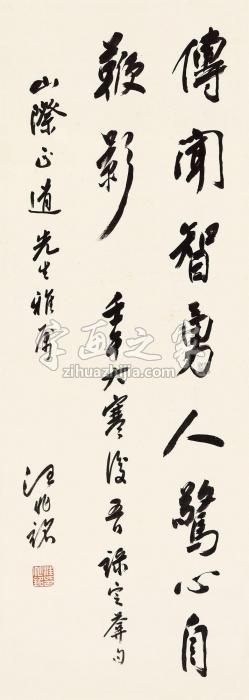 傳聞智勇人驚心自
鞭影
壬午大寒後五日錄定菴句
山際正道先生雅屬
汪兆銘
字画之家
zihuazhijia.com